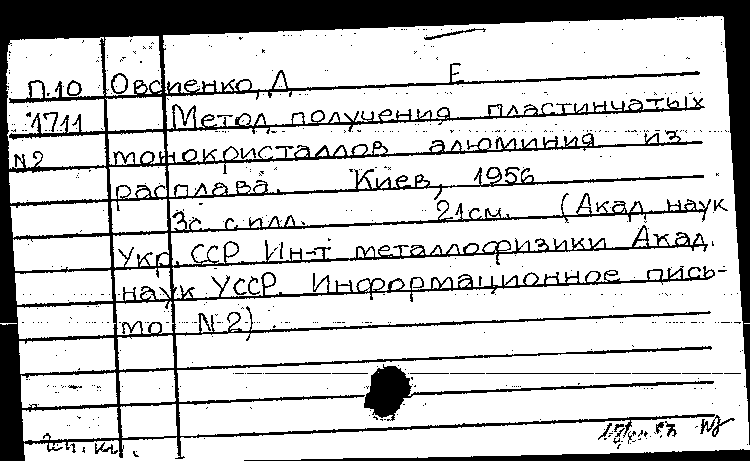 П.10 Овсиенко, Д Е
1711 Метод получения пластинчатых
N2 монокристаллов алюминия из
расплава. Киев, 1956
3с. с илл. 21см. (Акад. наук
Укр. ССР. Ин-т металлофизики Акад.
наук УССР. Информационное пись-
мо N2).